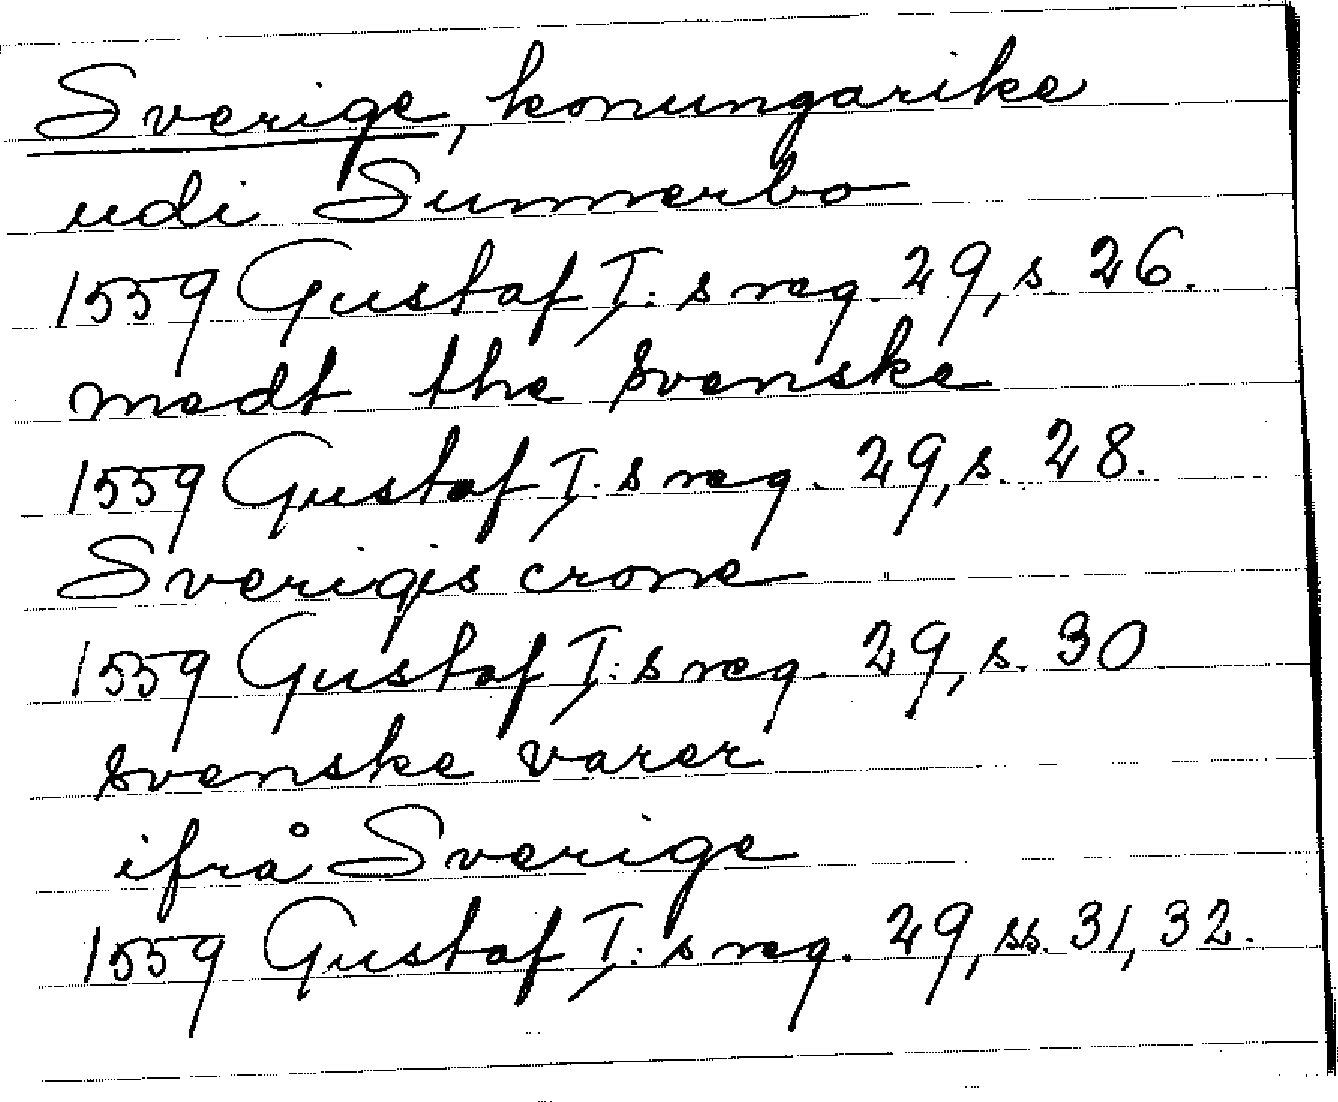 Sverige, konungarike
udi Sunnerbo
1559 Gustaf I:s reg. 29, s. 26.
medt the svenske
1559 Gustaf I:s reg. 29, s. 28.
Sverigis crone
1559 Gustaf I:s reg. 29, s. 30
svenske varer
ifrå Sverige
1559 Gustaf I:s reg. 29, ss. 31, 32.